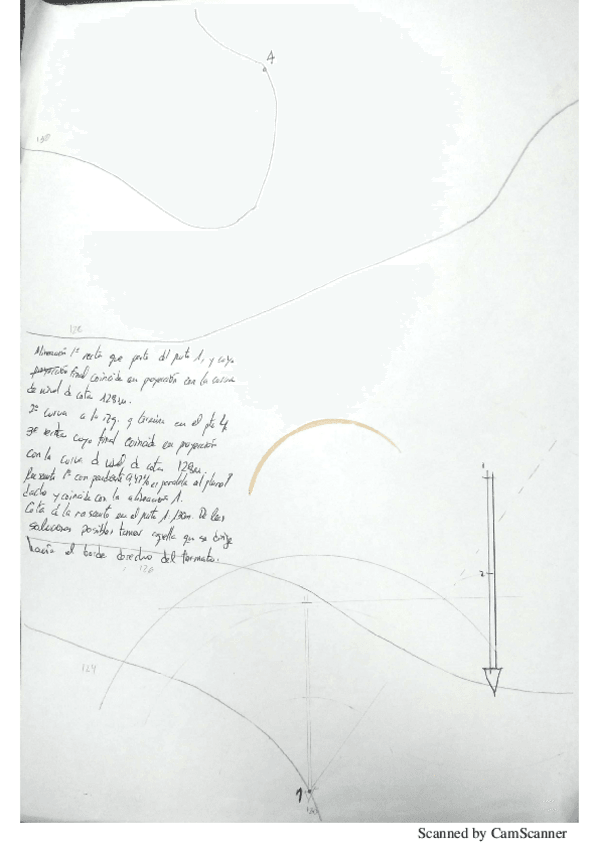 4
130
Alineación 1ª recta que parte del punto 1, y cuya
proyección final coincide en proyección con la curva
de nivel de cota 128m.
2ª curva a la izq. y termina en el pto 4
3ª recta cuyo final coincide en proyección
con la curva d nivel de cota 128m.
Rasante 1ª con pendiente 9,47% es paralela al plano
dado y coincide con la alineación 1.
Cota de la rasante en el punto 1 130m. De las
soluciones posibles tomar aquella que se dirige
hacia el borde derecho del formato.
126
1
2
124
1